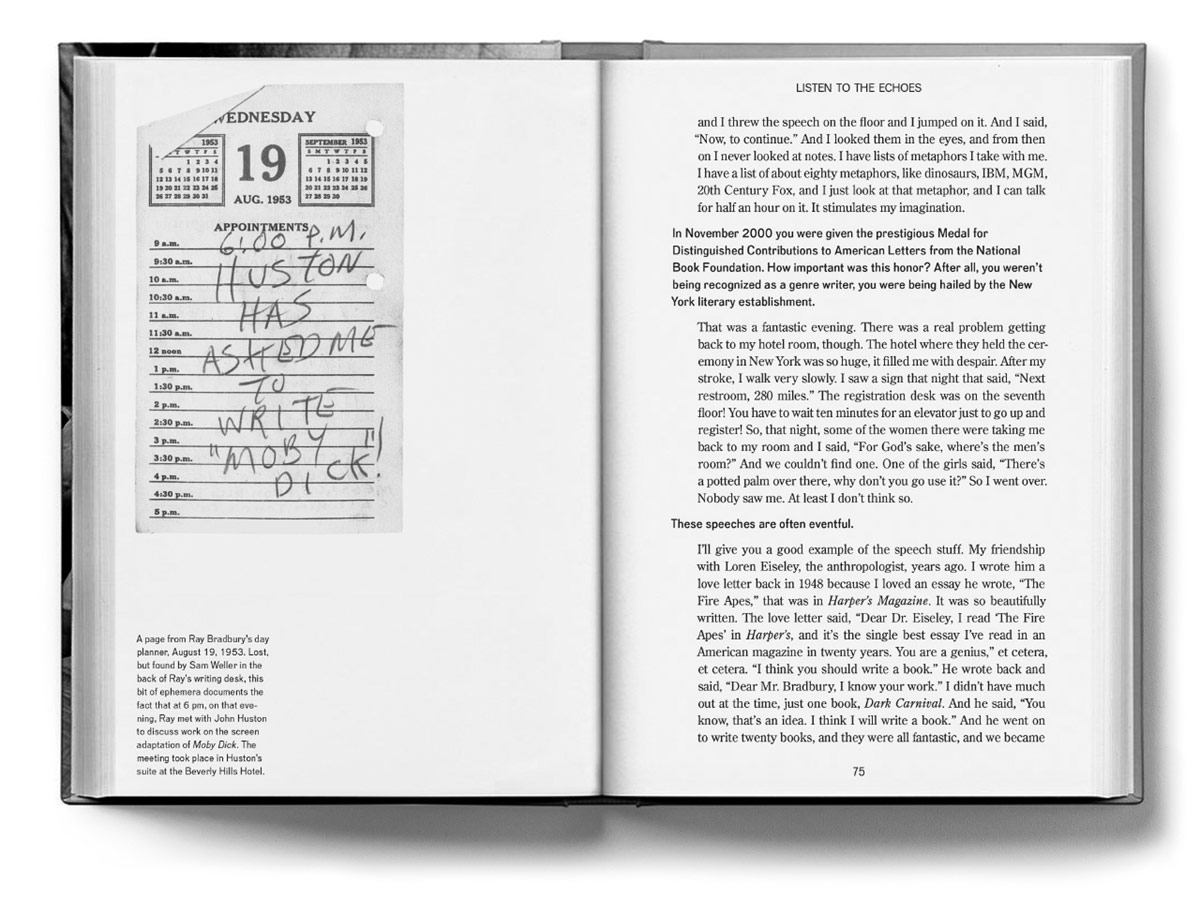 WEDNESDAY
1953
T W T F S
1 2 3 4
5 6 7 8 9 10 11
12 13 14 15 16 17 18
19 20 21 22 23 24 25
26 27 28 29 30 31
19
AUG. 1953
SEPTEMBER 1953
S M T W T F S
1 2 3 4 5
6 7 8 9 10 11 12
13 14 15 16 17 18 19
20 21 22 23 24 25 26
27 28 29 30
APPOINTMENTS
6:00 P.M.
HUSTON
HAS
ASKED ME
TO
WRITE
"MOBY
DICK!"
9 a.m.
9:30 a.m.
10 a.m.
10:30 a.m.
11 a.m.
11:30 a.m.
12 noon
1 p.m.
1:30 p.m.
2 p.m.
2:30 p.m.
3 p.m.
3:30 p.m.
4 p.m.
4:30 p.m.
5 p.m.
A page from Ray Bradbury's day
planner, August 19, 1953. Lost,
but found by Sam Weller in the
back of Ray's writing desk, this
bit of ephemera documents the
fact that at 6 pm, on that eve-
ning, Ray met with John Huston
to discuss work on the screen
adaptation of Moby Dick. The
meeting took place in Huston's
suite at the Beverly Hills Hotel.
LISTEN TO THE ECHOES
and I threw the speech on the floor and I jumped on it. And I said,
“Now, to continue.” And I looked them in the eyes, and from then
on I never looked at notes. I have lists of metaphors I take with me.
I have a list of about eighty metaphors, like dinosaurs, IBM, MGM,
20th Century Fox, and I just look at that metaphor, and I can talk
for half an hour on it. It stimulates my imagination.
In November 2000 you were given the prestigious Medal for
Distinguished Contributions to American Letters from the National
Book Foundation. How important was this honor? After all, you weren’t
being recognized as a genre writer, you were being hailed by the New
York literary establishment.
That was a fantastic evening. There was a real problem getting
back to my hotel room, though. The hotel where they held the cer-
emony in New York was so huge, it filled me with despair. After my
stroke, I walk very slowly. I saw a sign that night that said, “Next
restroom, 280 miles.” The registration desk was on the seventh
floor! You have to wait ten minutes for an elevator just to go up and
register! So, that night, some of the women there were taking me
back to my room and I said, “For God’s sake, where’s the men’s
room?” And we couldn’t find one. One of the girls said, “There’s
a potted palm over there, why don’t you go use it?” So I went over.
Nobody saw me. At least I don’t think so.
These speeches are often eventful.
I’ll give you a good example of the speech stuff. My friendship
with Loren Eiseley, the anthropologist, years ago. I wrote him a
love letter back in 1948 because I loved an essay he wrote, “The
Fire Apes,” that was in Harper’s Magazine. It was so beautifully
written. The love letter said, “Dear Dr. Eiseley, I read ‘The Fire
Apes’ in Harper’s, and it’s the single best essay I’ve read in an
American magazine in twenty years. You are a genius,” et cetera,
et cetera. “I think you should write a book.” He wrote back and
said, “Dear Mr. Bradbury, I know your work.” I didn’t have much
out at the time, just one book, Dark Carnival. And he said, “You
know, that’s an idea. I think I will write a book.” And he went on
to write twenty books, and they were all fantastic, and we became
75